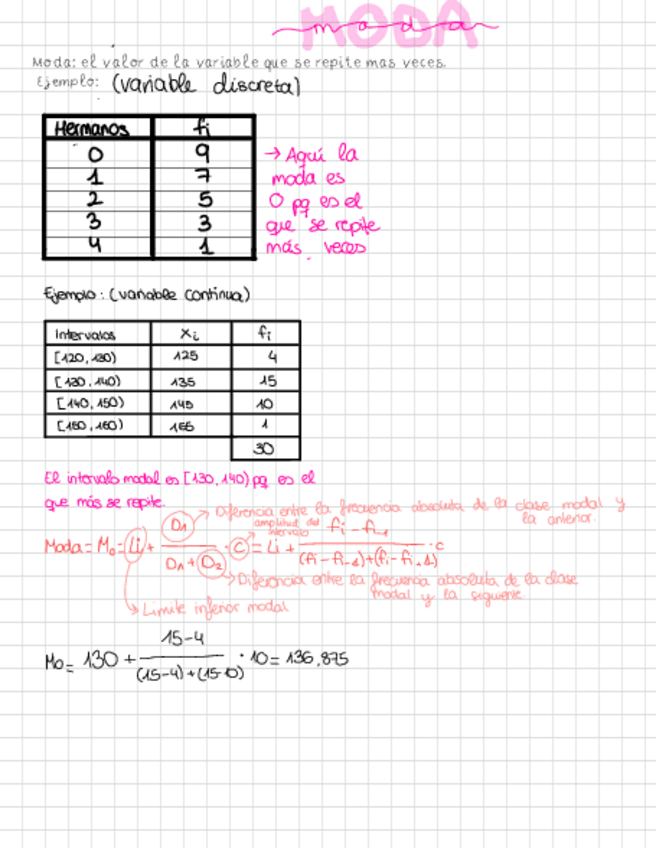 MODA
moda
Moda: el valor de la variable que se repite mas veces.
Ejemplo: (variable discreta)
Hermanos fi
0 9
1 7
2 5
3 3
4 1
→ Aquí la
moda es
0 pq es el
que se repite
más veces
Ejemplo: (variable continua)
Intervalos xi fi
[120, 130) 125 4
[130, 140) 135 15
[140, 150) 145 10
[150, 160) 155 1
30
El intervalo modal es [130, 140) pq es el
que más se repite.
Diferencia entre la frecuencia absoluta de la clase modal y
la anterior.
amplitud del
intervalo
Moda = Mo = Li + D1 / (D1 + D2) · C = Li + (fi - fi-1) / ((fi - fi-1) + (fi - fi+1)) · c
Diferencia entre la frecuencia absoluta de la clase
modal y la siguiente
Limite inferior modal
Mo = 130 + (15-4) / ((15-4) + (15-10)) · 10 = 136,875